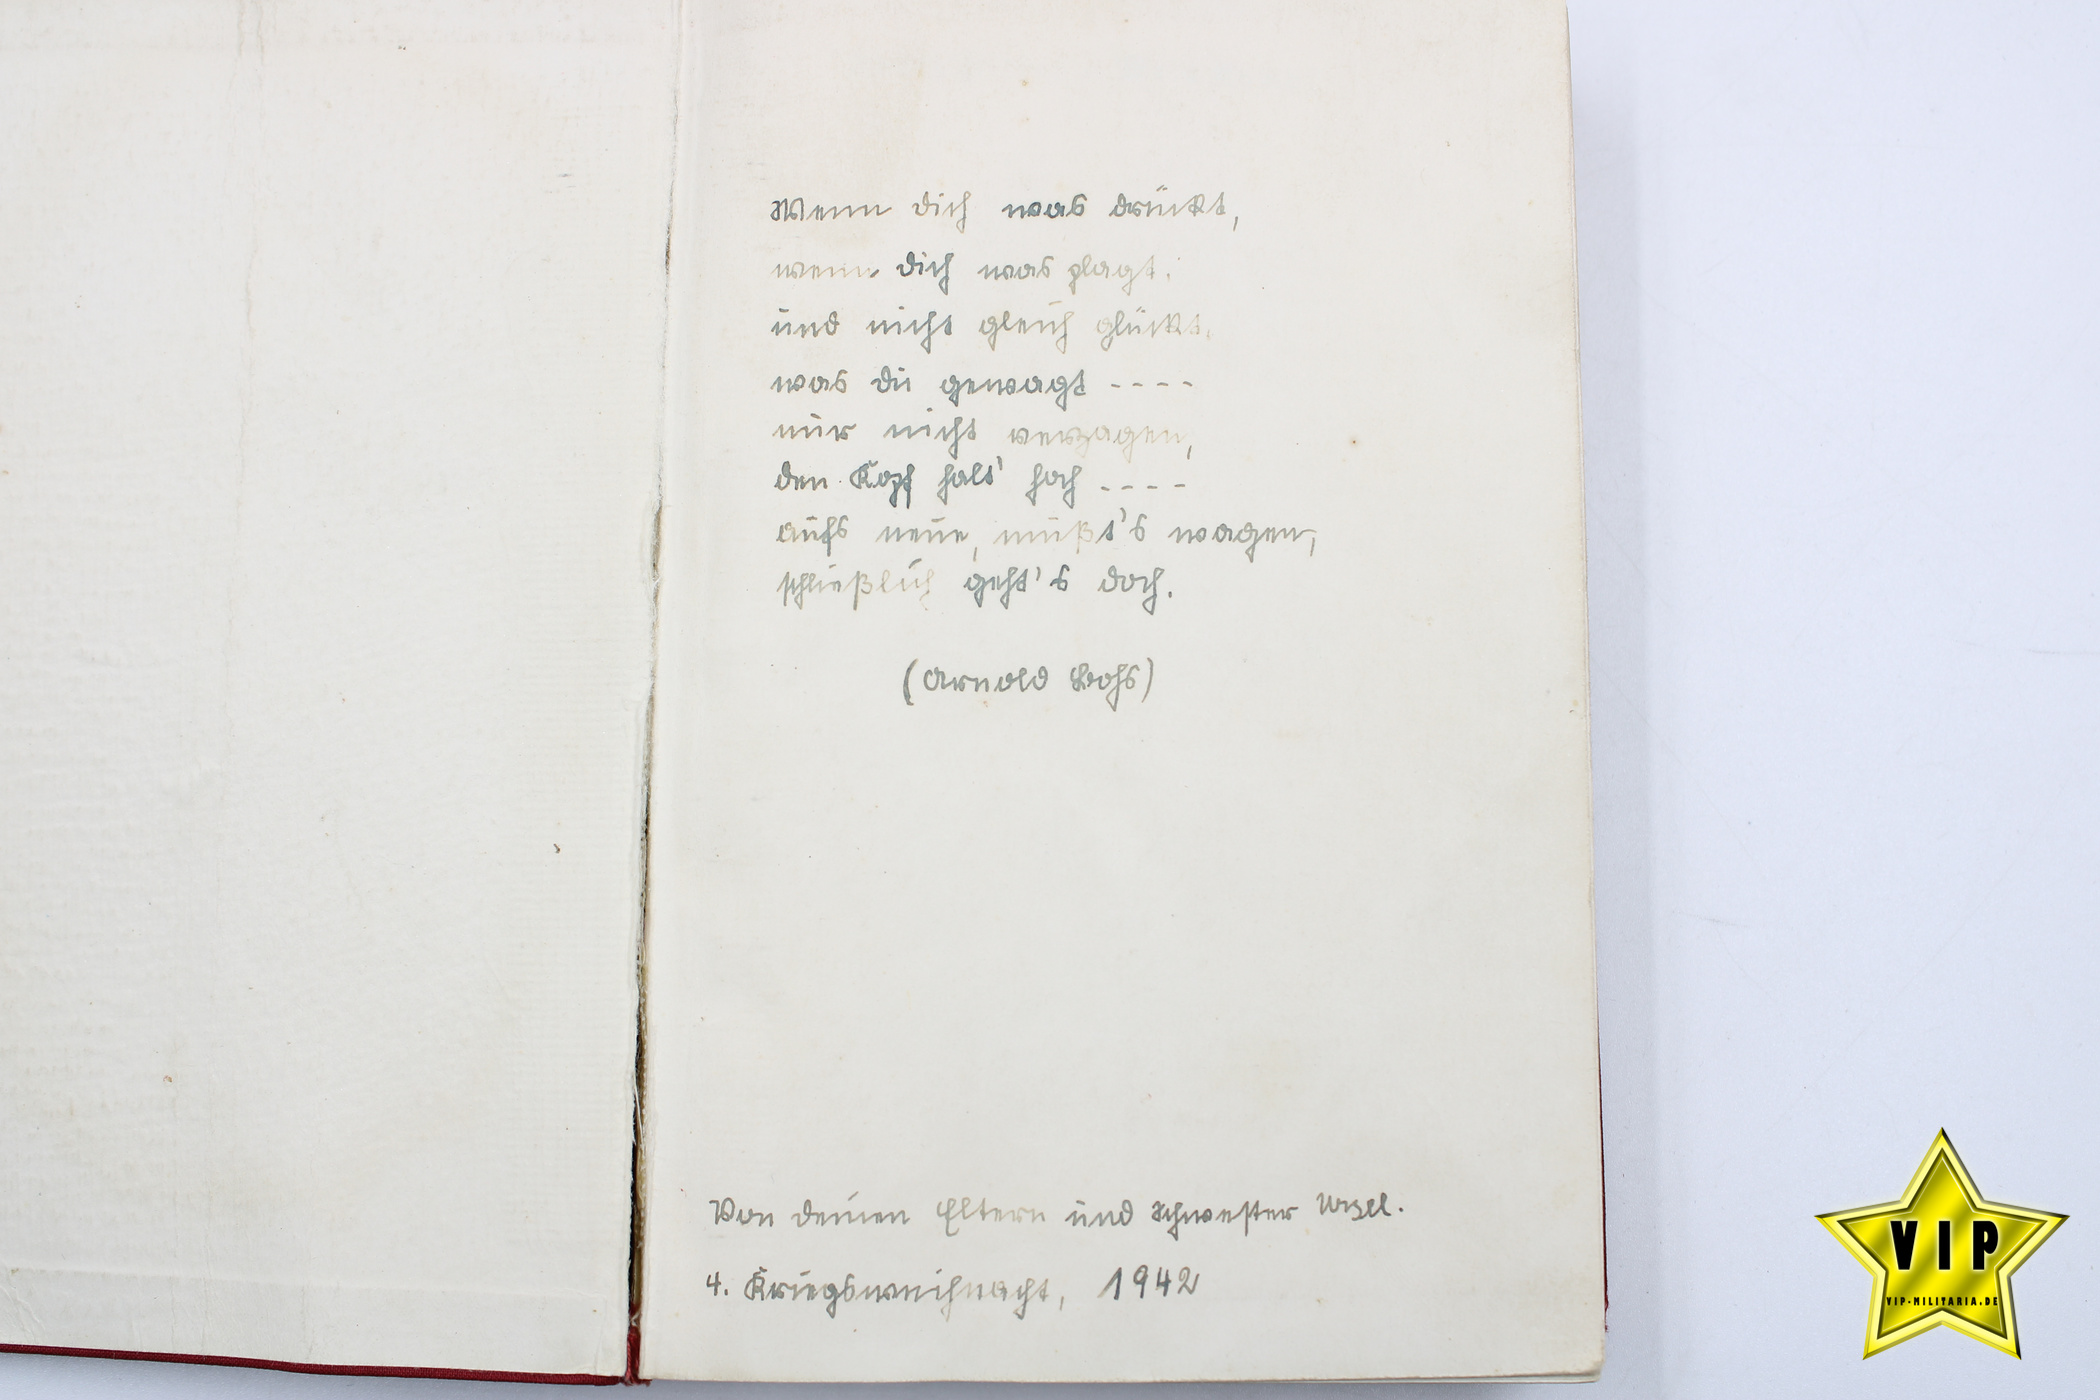 Wenn dich was drückt,
wenn dich was plagt,
und nicht gleich glückt,
was du gewagt ----
nur nicht verzagen,
den Kopf halt' hoch ----
aufs neue, mußt's wagen,
schließlich geht's doch.
(Arnold
Von deinen Eltern und Schwester
4. Kriegsweihnacht, 1942
VIP
VIP-MILITARIA.DE